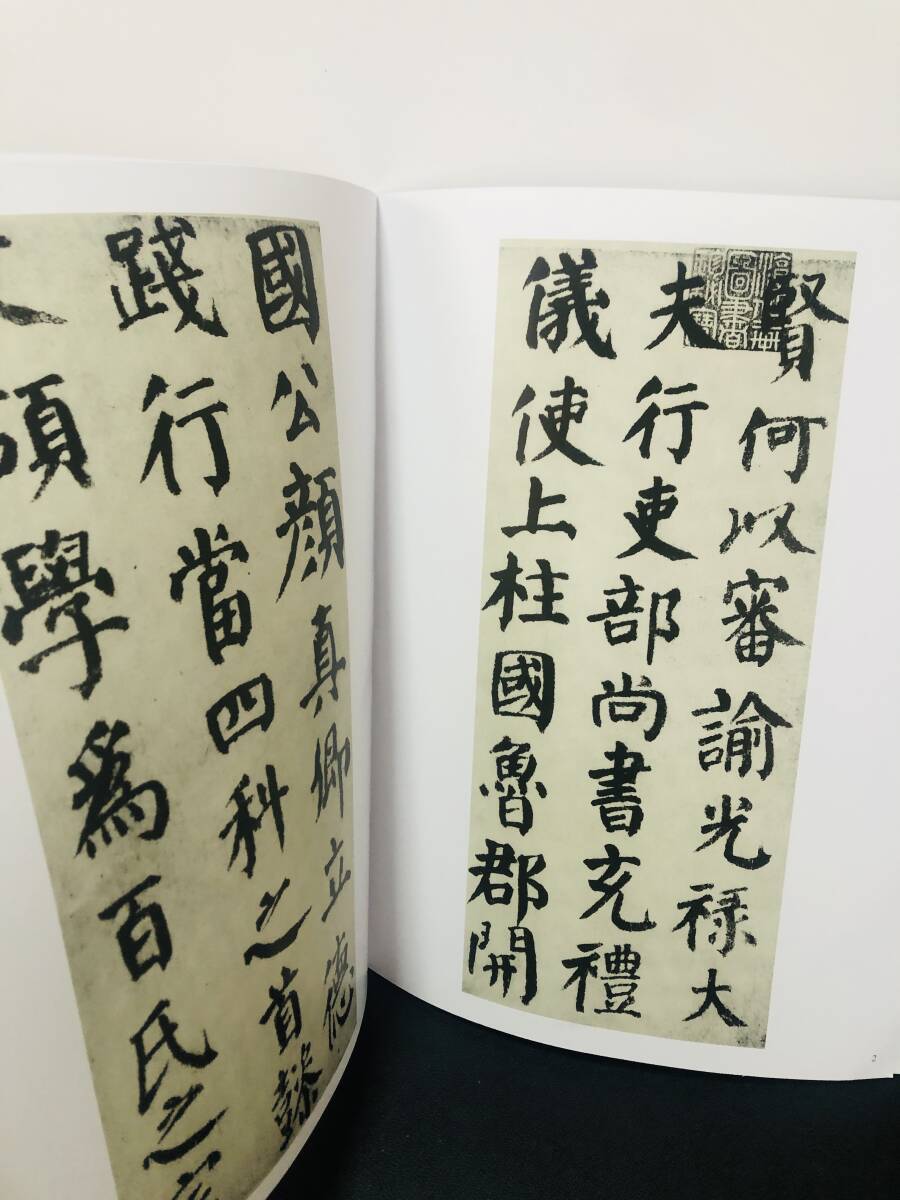 賢何以審諭光禄大
夫行吏部尚書充禮
儀使上柱國魯郡開
國公顔真卿立德
踐行當四科之首懿
碩學爲百氏之
2